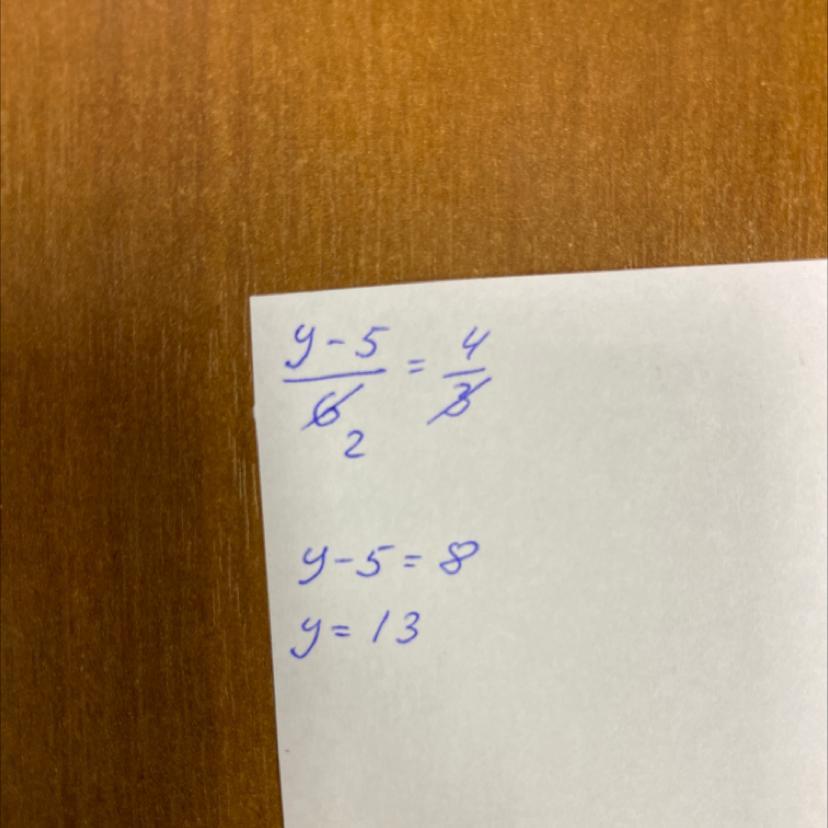 y-5/6 = 4/3
2
y-5=8
y=13